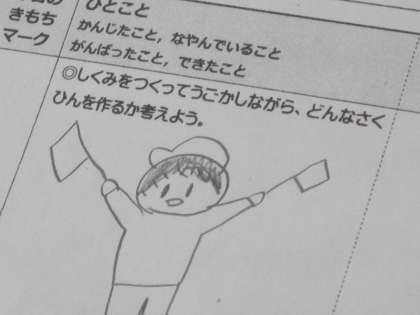 きもち
マーク
ひとこと
かんじたこと，なやんでいること
がんばったこと，できたこと
◎しくみをつくってうごかしながら、どんなさく
ひんを作るか考えよう。